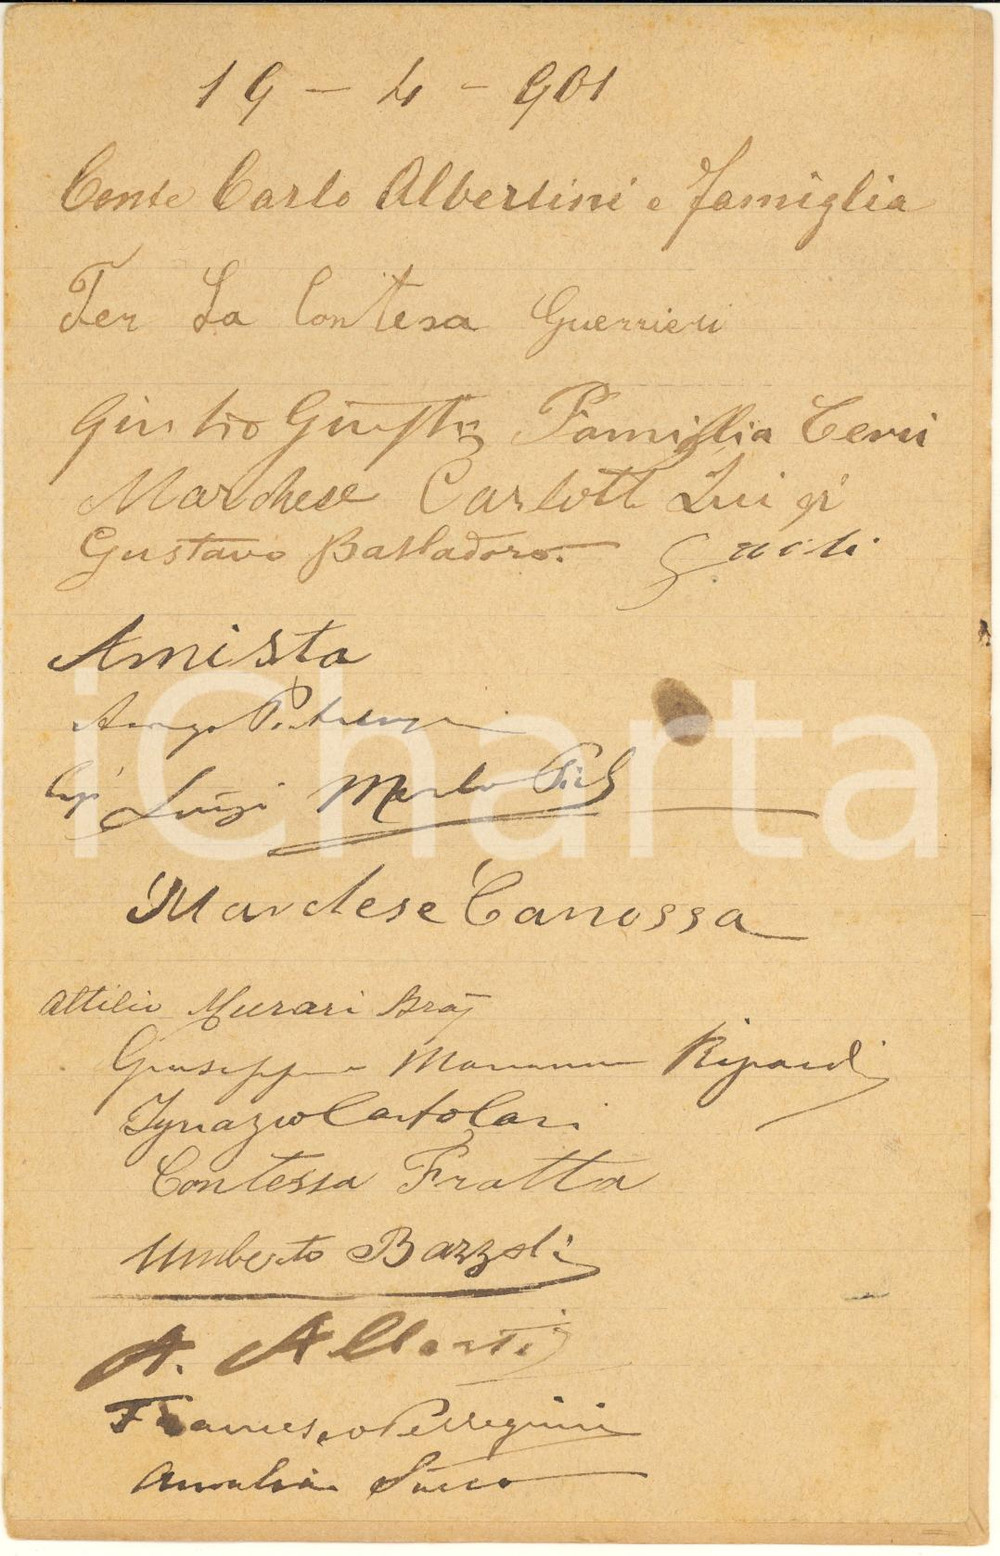 19 - 4 - 901
Conte Carlo Albertini e famiglia
Per La Contesa Guerrieri
Giustio Giusti Famiglia Cerù
Marchese Carlotti Luigi
Gustavo Balladoro.
Amista
Arrigo
Luigi Merlo
Marchese Canossa
Attilio Murari Brà
Giuseppe Ripardi
Ignazio Cartolari
Contessa Fratta
Umberto Bazzoli
A. Alberti
Francesco Perregrini
Amalia Sacco
iCharta